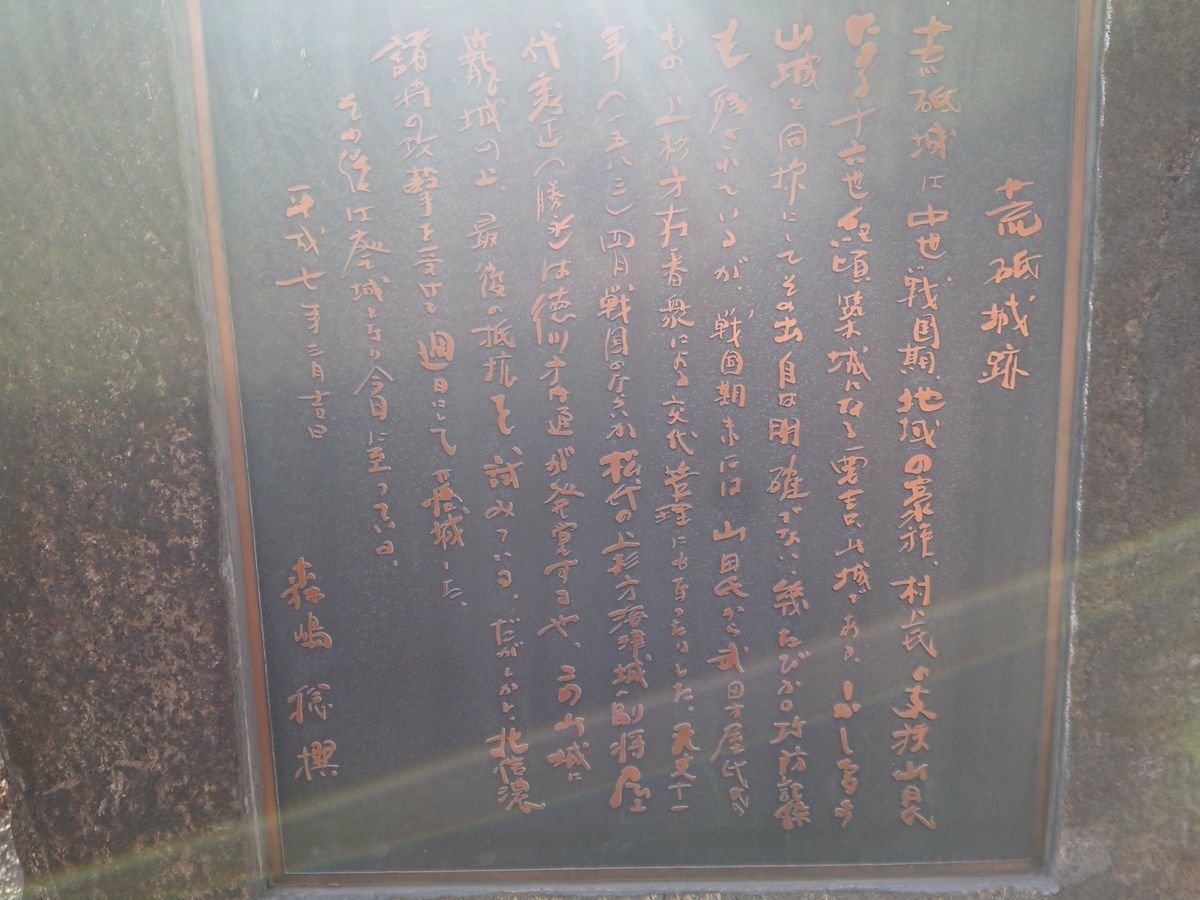 荒砥城跡
荒砥城は中世戦国期、地域の豪族、村上氏の支族山田氏
による十六世紀頃築城になる要害山城であり、しかし多
山城と同様にしてその出自は明確でない、幾たびかの攻防記録
も残されているが、戦国期末には山田氏から武田方屋代氏
もの上杉方右番衆による交代管理に
年(一五八三)四月戦国のならいか松代の上杉方海津城副将屋
代秀正(勝永)は徳川方内通が発覚するや、この山城に
籠城の上、最後の抵抗を試みている。だがしかし、北信濃
諸将の攻撃を受け週日にして落城した。
その後は廃城となり今日に至っている。
平成七年三月吉日
森嶋 稔 撰